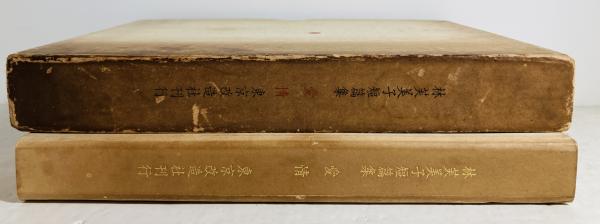 林芙美子短篇集 愛情 東京改造社刊行
林芙美子短篇集 愛情 東京改造社刊行